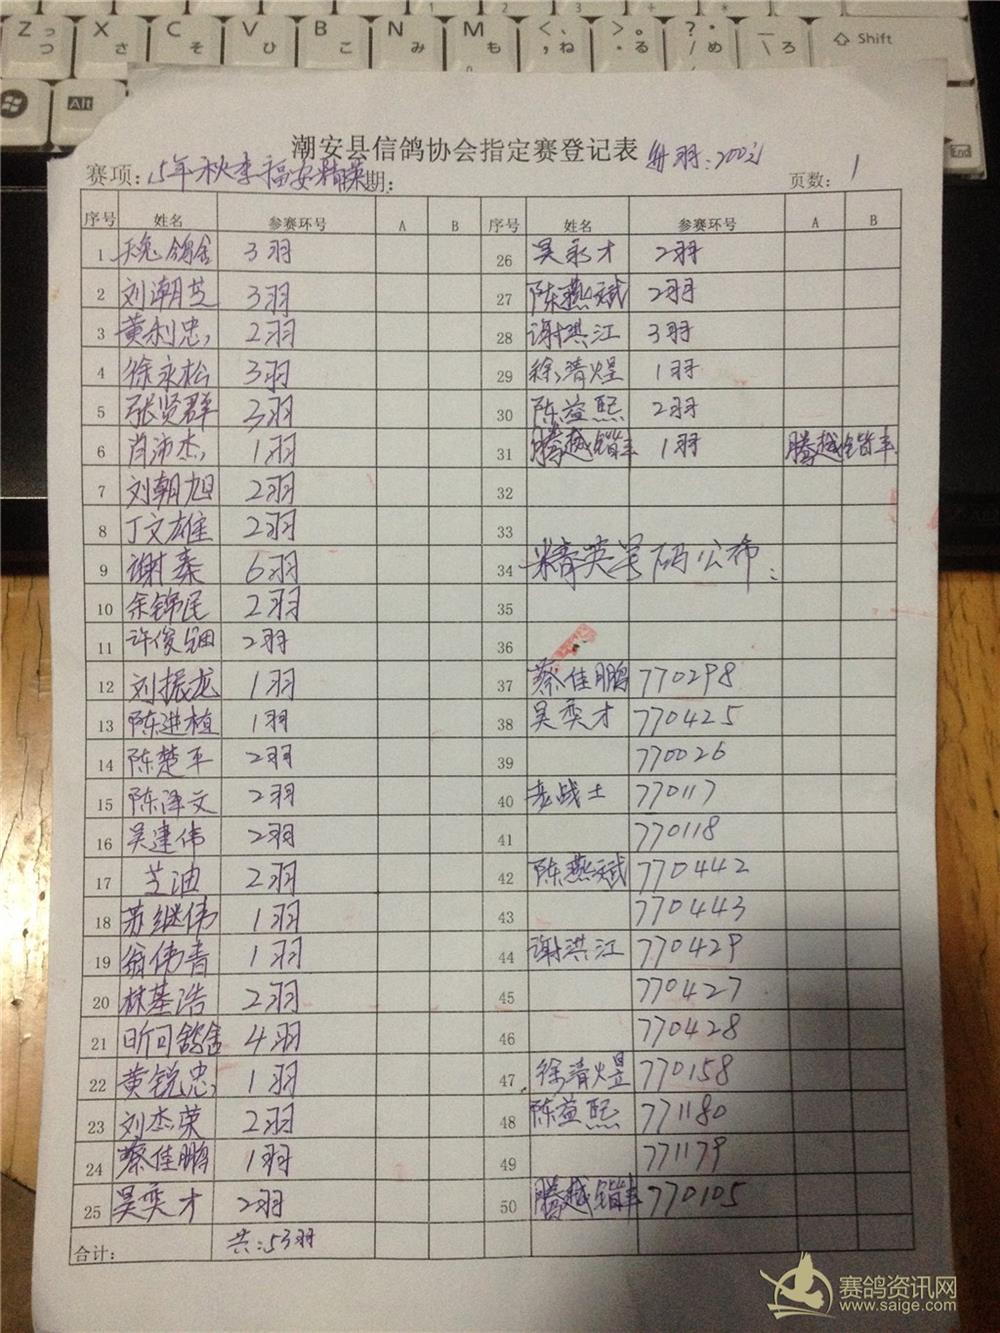 潮安县信鸽协会指定赛登记表 每羽:200元
赛项:15年秋季福安精英 期: 页数: 1
序号 姓名 参赛环号 A B 序号 姓名 参赛环号 A B
1 天兔鸽舍 3羽 26 吴永才 2羽
2 刘潮芝 3羽 27 陈燕斌 2羽
3 黄利忠 2羽 28 谢洪江 3羽
4 徐永松 3羽 29 徐清煜 1羽
5 张贤群 3羽 30 陈益熙 2羽
6 肖沛杰 1羽 31 腾越 1羽 腾越
7 刘朝旭 2羽 32
8 丁文雄 2羽 33
9 谢泰 6羽 34 精英号码公布:
10 余锦民 2羽 35
11 许俊钿 2羽 36
12 刘振龙 1羽 37 蔡佳鹏 770298
13 陈进植 1羽 38 吴奕才 770425
14 陈楚平 2羽 39 770026
15 陈泽文 2羽 40 老战士 770117
16 吴建伟 2羽 41 770118
17 芝迪 2羽 42 陈燕斌 770442
18 苏继伟 1羽 43 770443
19 翁伟青 1羽 44 谢洪江 770429
20 林基浩 2羽 45 770427
21 鸽舍 4羽 46 770428
22 黄锐忠 1羽 47 徐清煜 770158
23 刘杰荣 2羽 48 陈益熙 771180
24 蔡佳鹏 1羽 49 771179
25 吴奕才 2羽 50 腾越 770105
合计: 共:53羽
赛鸽资讯网
www.saige.com
Z X C V B N M Shift
Alt End